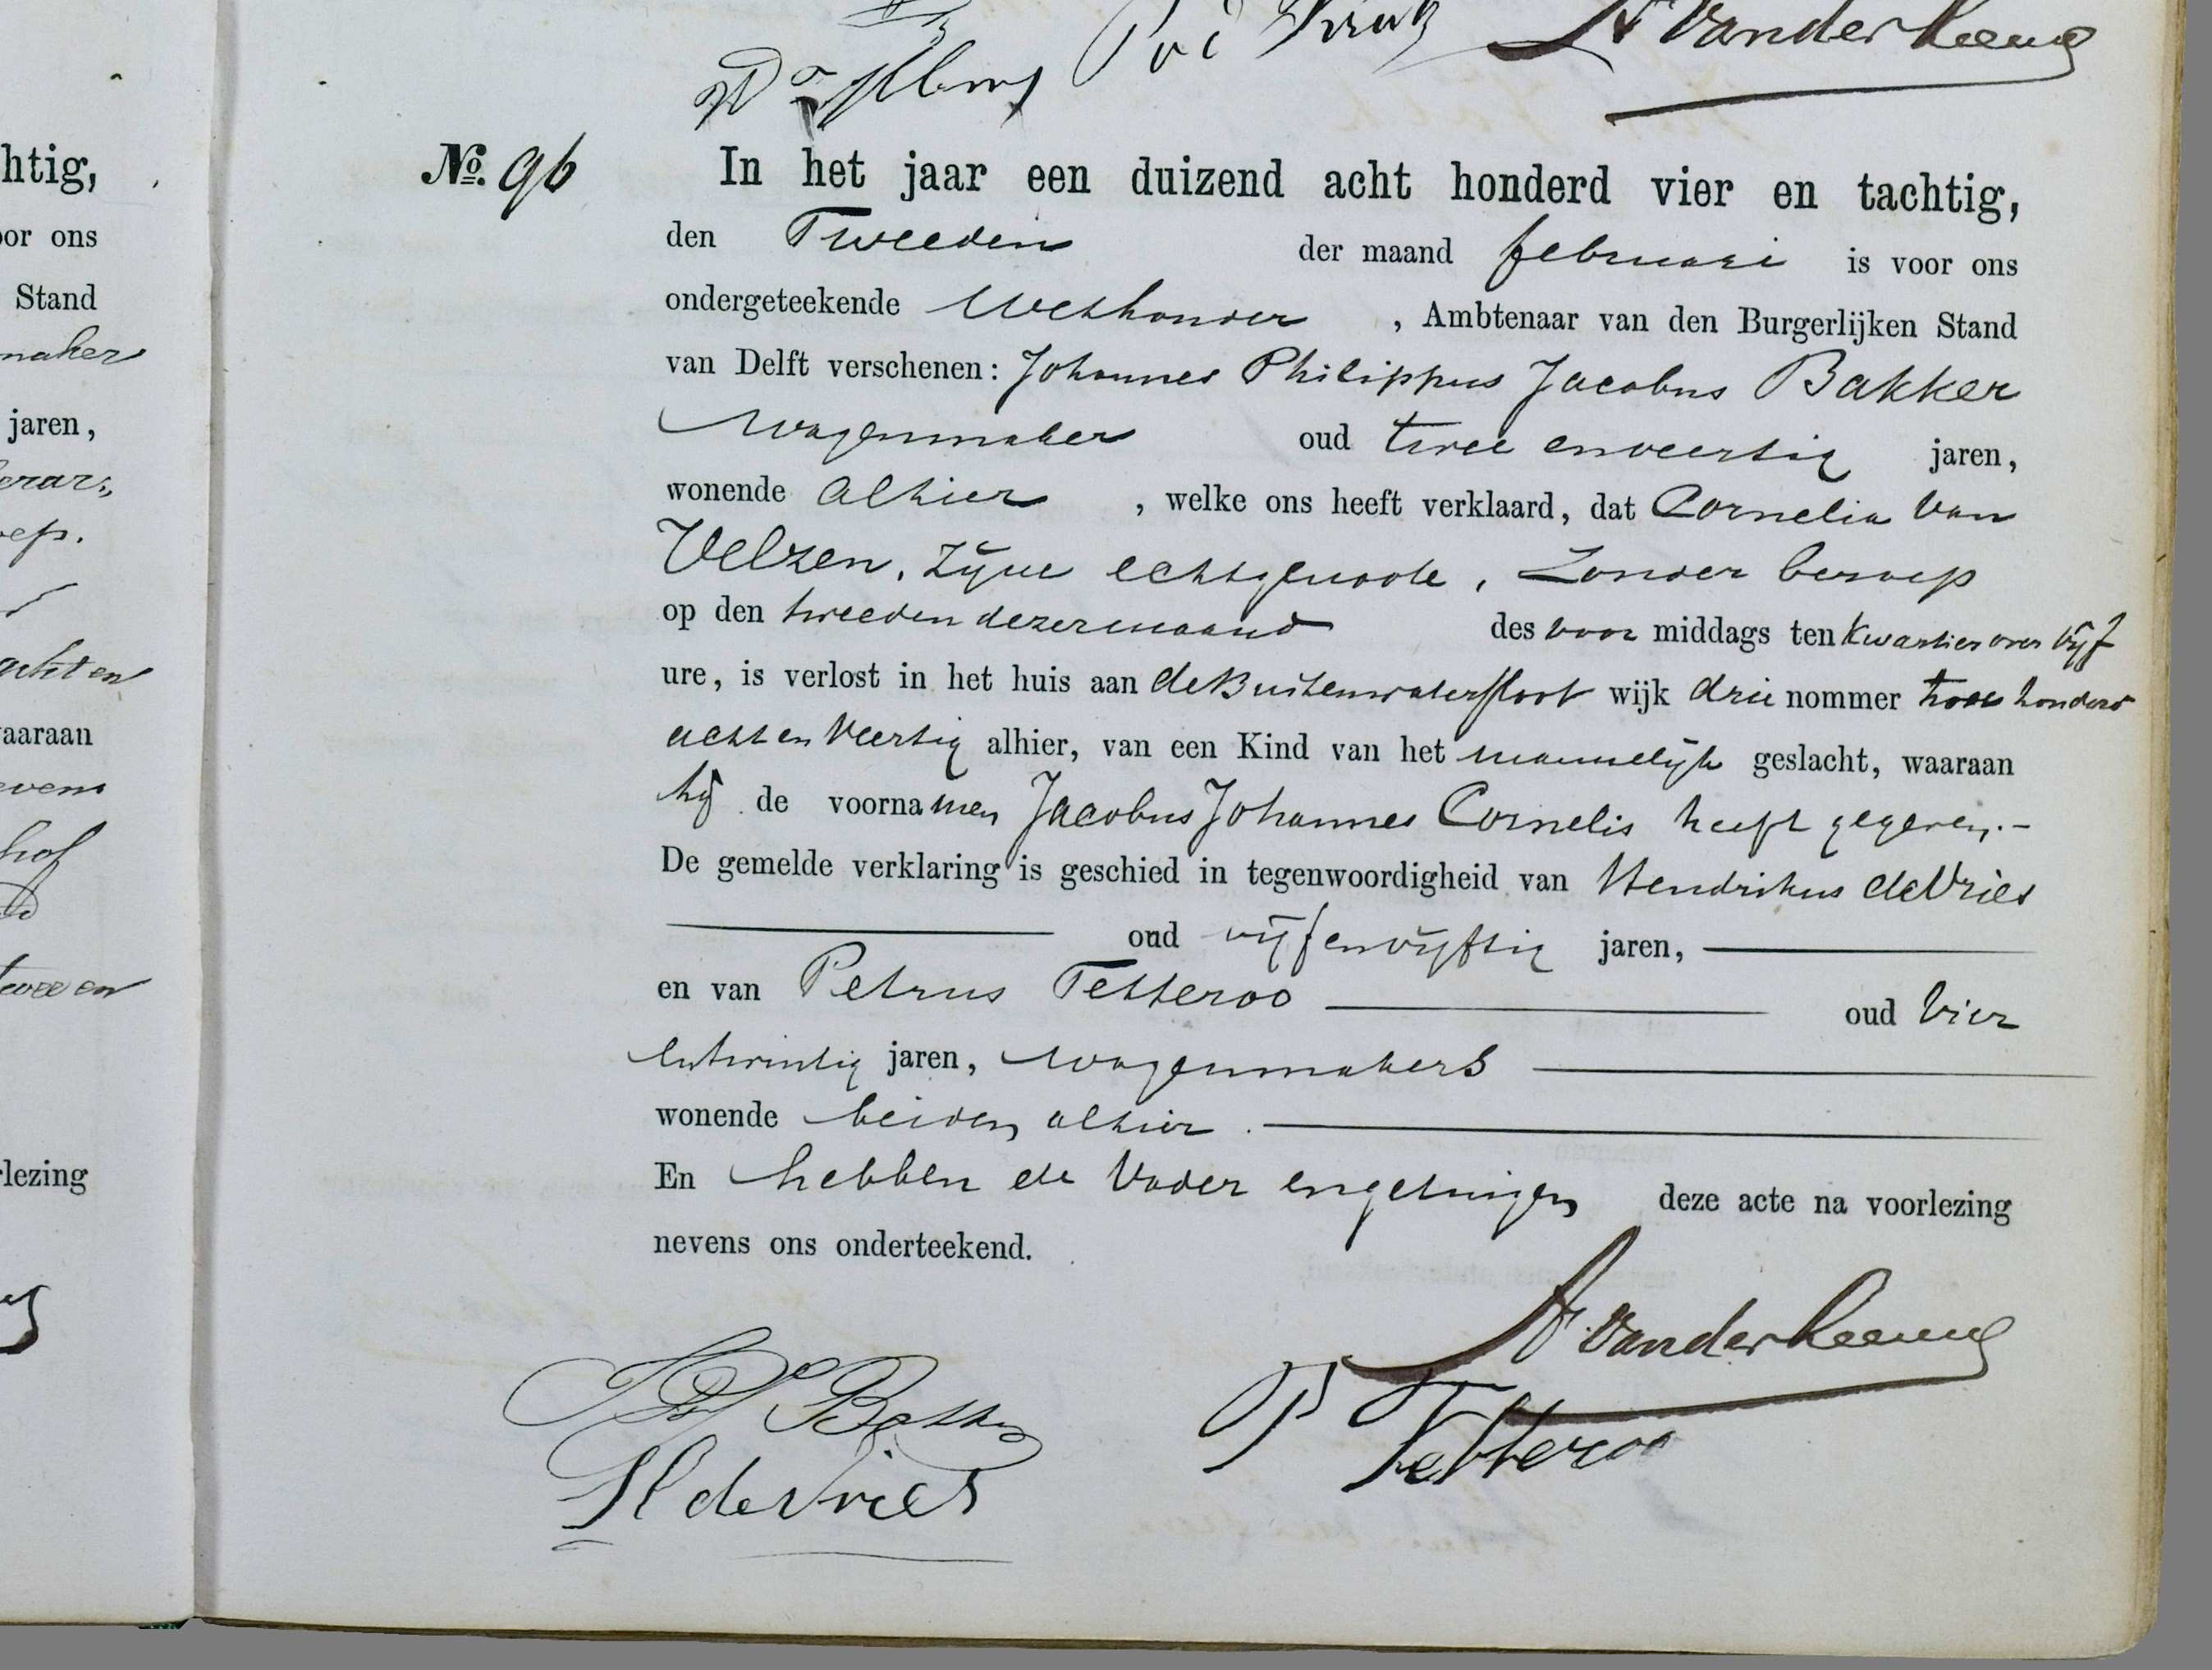 A Vander
htig,
oor ons
Stand
maker
jaren,
erar:
oep.
acht en
aaraan
evens
hof
twee en
rlezing
No. 96 In het jaar een duizend acht honderd vier en tachtig,
den Tweeden der maand februari is voor ons
ondergeteekende Wethouder , Ambtenaar van den Burgerlijken Stand
van Delft verschenen: Johannes Philippus Jacobus Bakker
Wagenmaker oud twee en veertig jaren,
wonende alhier , welke ons heeft verklaard, dat Cornelia van
Velzen, zijne echtgenoote, Zonder beroep
op den tweeden dezer maand des voor middags ten kwartier over vijf
ure, is verlost in het huis aan de Buitenwatersloot wijk drie nommer twee honderd
acht en veertig alhier, van een Kind van het mannelijk geslacht, waaraan
hij de voornamen Jacobus Johannes Cornelis heeft gegeven.-
De gemelde verklaring is geschied in tegenwoordigheid van Hendrikus de Vries
oud vijf en vijftig jaren,
en van Petrus Tetteroo oud vier
entwintig jaren, wagenmakers
wonende beiden alhier.
En hebben de Vader en getuigen deze acte na voorlezing
nevens ons onderteekend.
A Vander
Bakker
P Tetteroo
H de Vries